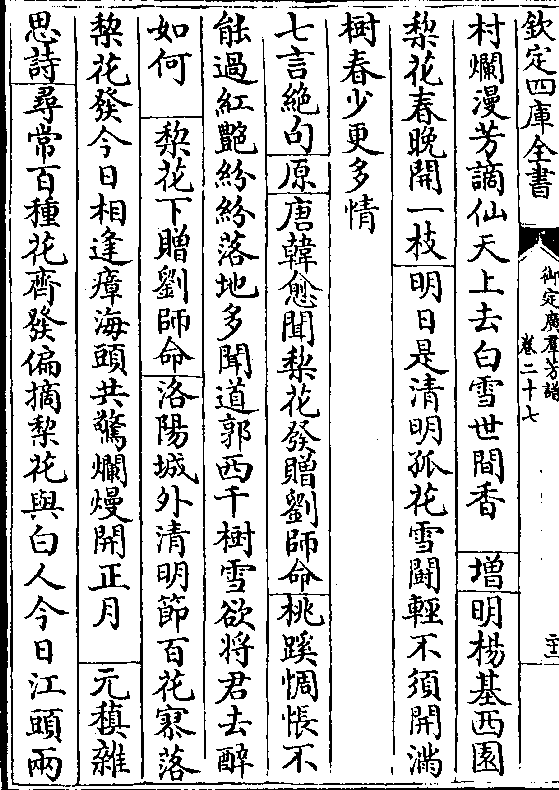 欽定四庫全書
御定廣羣芳譜
卷二十七
村爛漫芳謫仙天上去白雪世間香 增明楊基西園
梨花春晚開一枝明日是清明孤花雪鬬輕不須開滿
樹春少更多情
七言絶句原唐韓愈聞棃花發贈劉師命桃蹊惆悵不
能過紅艷紛紛落地多聞道郭西千樹雪欲将君去醉
如何 棃花下贈劉師命洛陽城外清明節百花寥落
棃花發今日相逢瘴海頭共驚爛熳開正月 元稹雜
思詩尋常百種花齊發偏摘棃花與白人今日江頭兩